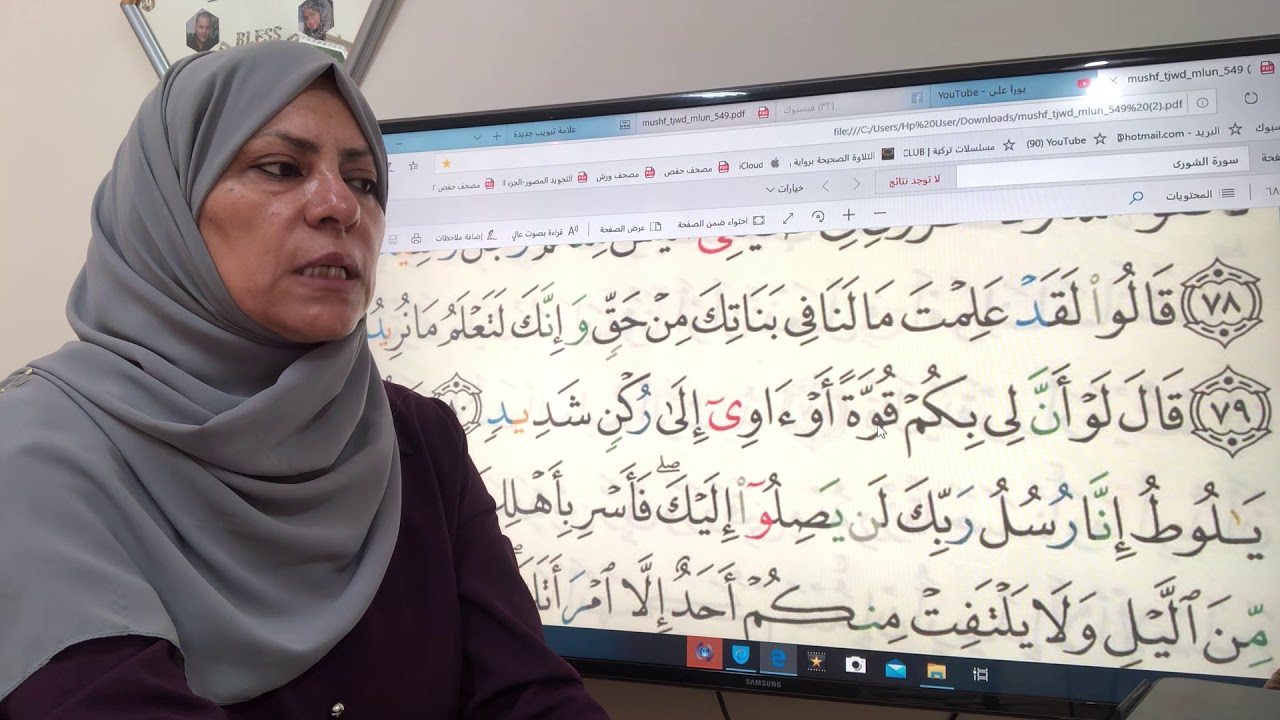 BLESS
mushf_tjwd_mlun_549 (
يورا على - YouTube
(٣٦) فيسبوك
mushf_tjwd_mlun_549.pdf
علامة تبويب جديدة
file:///C:/Users/Hp%20User/Downloads/mushf_tjwd_mlun_549%20(2).pdf
البريد - hotmail.com
YouTube (90)
مسلسلات تركية | CLUB
التلاوة الصحيحة برواية
iCloud
مصحف حفص
مصحف ورش
التجويد المصور-الجزء
مصحف حفص ٢
سورة الشورى
لا توجد نتائج
خيارات
المحتويات
احتواء ضمن الصفحة
عرض الصفحة
قراءة بصوت عالٍ
إضافة ملاحظات
٧٨ قَالُوا۟ لَقَدۡ عَلِمۡتَ مَا لَنَا فِی بَنَاتِكَ مِنۡ حَقࣲّ وَإِنَّكَ لَتَعۡلَمُ مَا نُرِیدُ
٧٩ قَالَ لَوۡ أَنَّ لِی بِكُمۡ قُوَّةً أَوۡ ءَاوِیۤ إِلَىٰ رُكۡنࣲ شَدِیدࣲ
یَـٰلُوطُ إِنَّا رُسُلُ رَبِّكَ لَن یَصِلُوۤا۟ إِلَیۡكَۖ فَأَسۡرِ بِأَهۡلِكَ
مِّنَ ٱلَّیۡلِ وَلَا یَلۡتَفِتۡ مِنكُمۡ أَحَدٌ إِلَّا ٱمۡرَأَتَكَۖ
SAMSUNG